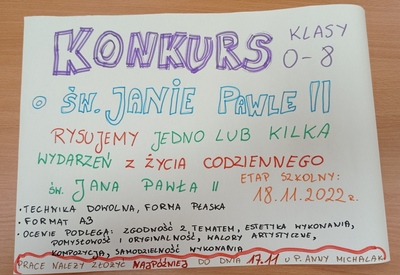 KONKURS KLASY 0-8
O ŚW. JANIE PAWLE II
RYSUJEMY JEDNO LUB KILKA
WYDARZEŃ Z ŻYCIA CODZIENNEGO
ŚW. JANA PAWŁA II
ETAP SZKOLNY:
18.11.2022r.
• TECHNIKA DOWOLNA, FORMA PŁASKA
• FORMAT A3
• OCENIE PODLEGA: ZGODNOŚĆ Z TEMATEM, ESTETYKA WYKONANIA,
POMYSŁOWOŚĆ I ORYGINALNOŚĆ, WALORY ARTYSTYCZNE,
KOMPOZYCJA, SAMODZIELNOŚĆ WYKONANIA
PRACE NALEŻY ZŁOŻYĆ NAJPÓŹNIEJ DO DNIA 17.11 U P. ANNY MICHALAK